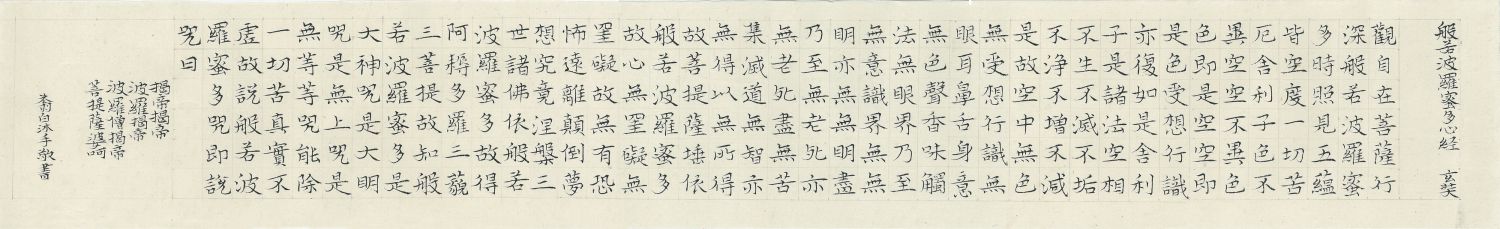 般若波羅蜜多心經 玄奘
觀自在菩薩行
深般若波羅蜜
多時照見五蘊
皆空度一切苦
厄舍利子色不
異空空不異色
色即是空空即
是色受想行識
亦復如是舍利
子是諸法空相
不生不滅不垢
不淨不增不減
是故空中無色
無受想行識無
眼耳鼻舌身意
無色聲香味觸
法無眼界乃至
無意識界無無
明亦無無明盡
乃至無老死亦
無老死盡無苦
集滅道無智亦
無得以無所得
故菩提薩埵依
般若波羅蜜多
故心無罣礙無
罣礙故無有恐
怖遠離顛倒夢
想究竟涅槃三
世諸佛依般若
波羅蜜多故得
阿耨多羅三藐
三菩提故知般
若波羅蜜多是
大神咒是大明
咒是無上咒是
無等等咒能除
一切苦真實不
虛故說般若波
羅蜜多咒即說
咒曰
揭帝揭帝
波羅揭帝
波羅僧揭帝
菩提薩婆呵
白沐手敬書